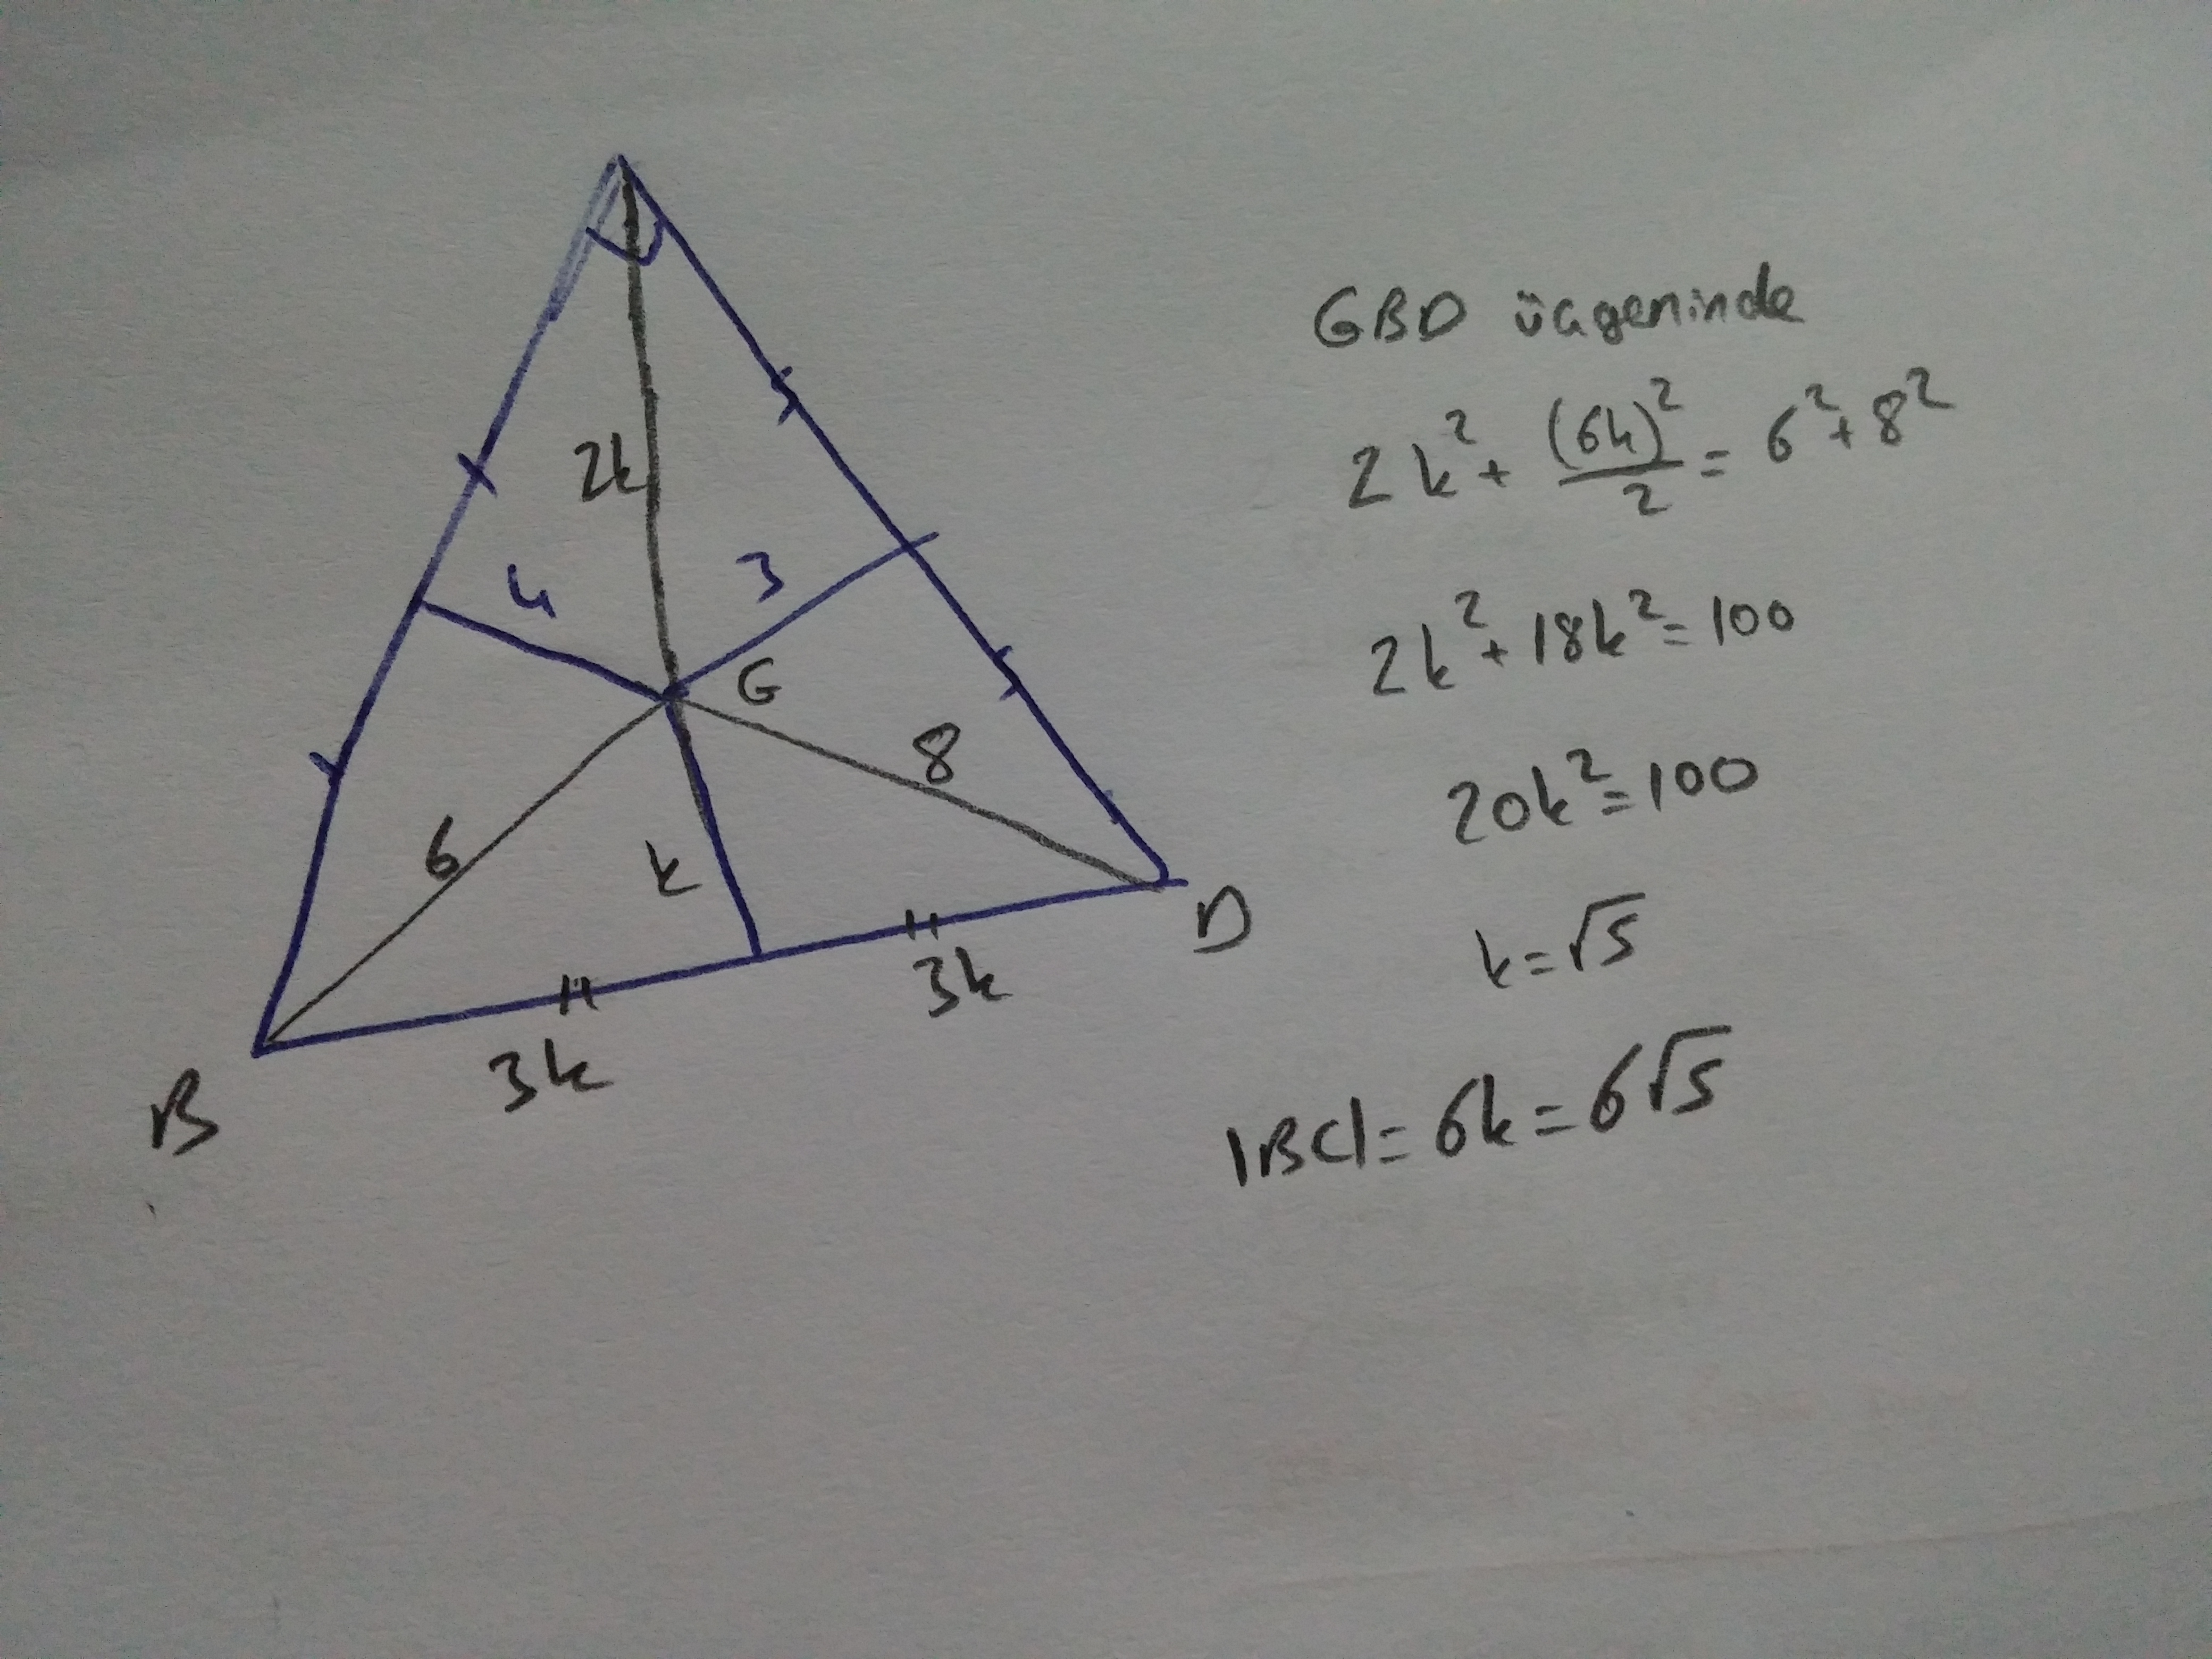 2k
4
3
G
8
6
k
D
3k
3k
B
GBD üçgeninde
2k² + (6k)²/2 = 6² + 8²
2k² + 18k² = 100
20k² = 100
k = √5
|BC| = 6k = 6√5